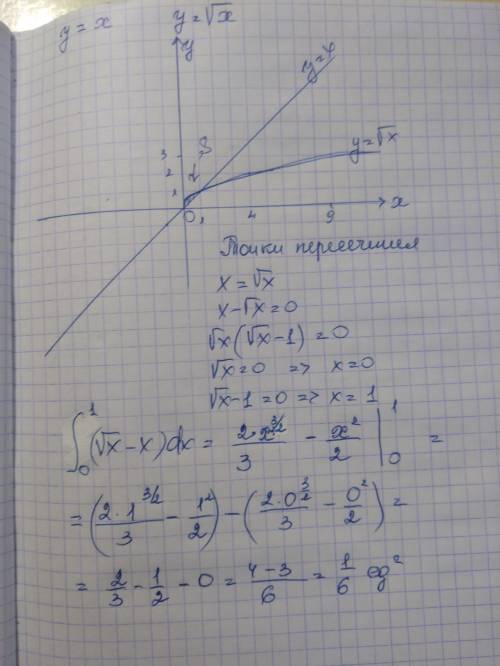 y = x y = √x
y
y = x
3 S
2
1
y = √x
0 1 4 9 x
Точки пересечения
x = √x
x - √x = 0
√x(√x - 1) = 0
√x = 0 => x = 0
√x - 1 = 0 => x = 1
∫₀¹ (√x - x) dx = 2·x^(3/2)/3 - x²/2 |₀¹ =
= (2·1^(3/2)/3 - 1²/2) - (2·0^(3/2)/3 - 0²/2) =
= 2/3 - 1/2 - 0 = (4 - 3)/6 = 1/6 eg²